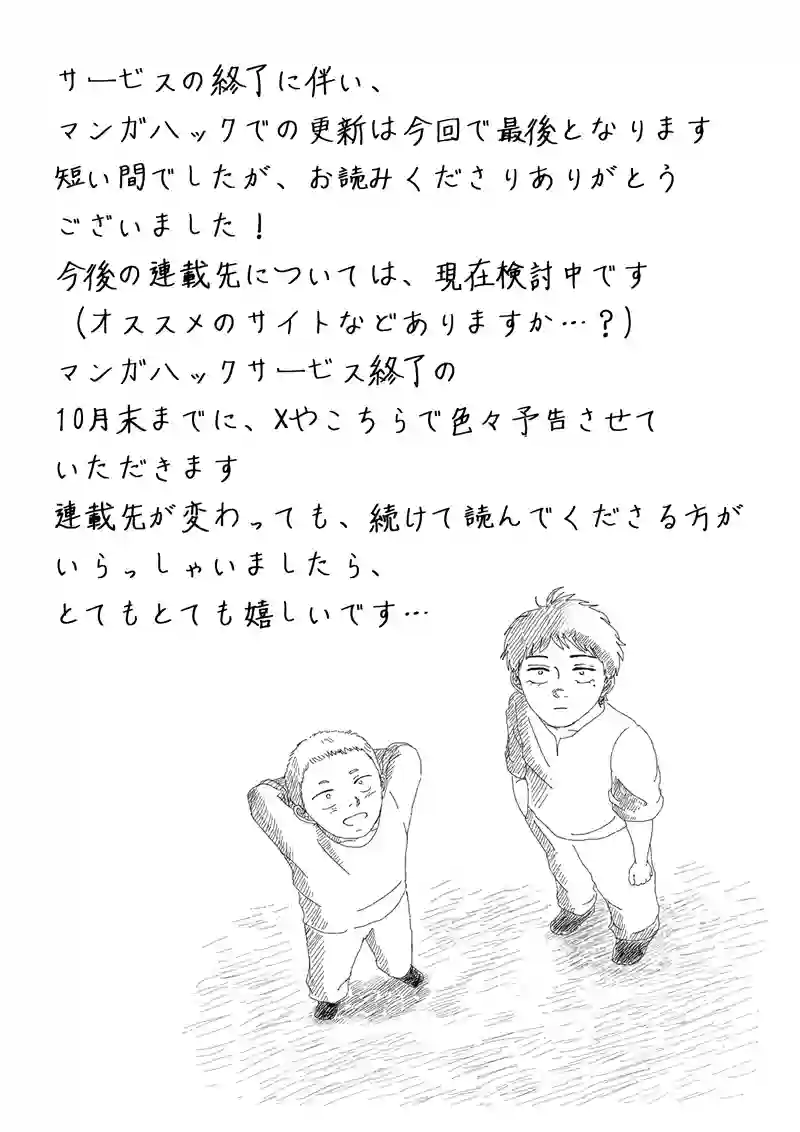 サービスの終了に伴い、
マンガハックでの更新は今回で最後となります
短い間でしたが、お読みくださりありがとう
ございました！
今後の連載先については、現在検討中です
（オススメのサイトなどありますか…？）
マンガハックサービス終了の
10月末までに、Xやこちらで色々予告させて
いただきます
連載先が変わっても、続けて読んでくださる方が
いらっしゃいましたら、
とてもとても嬉しいです…